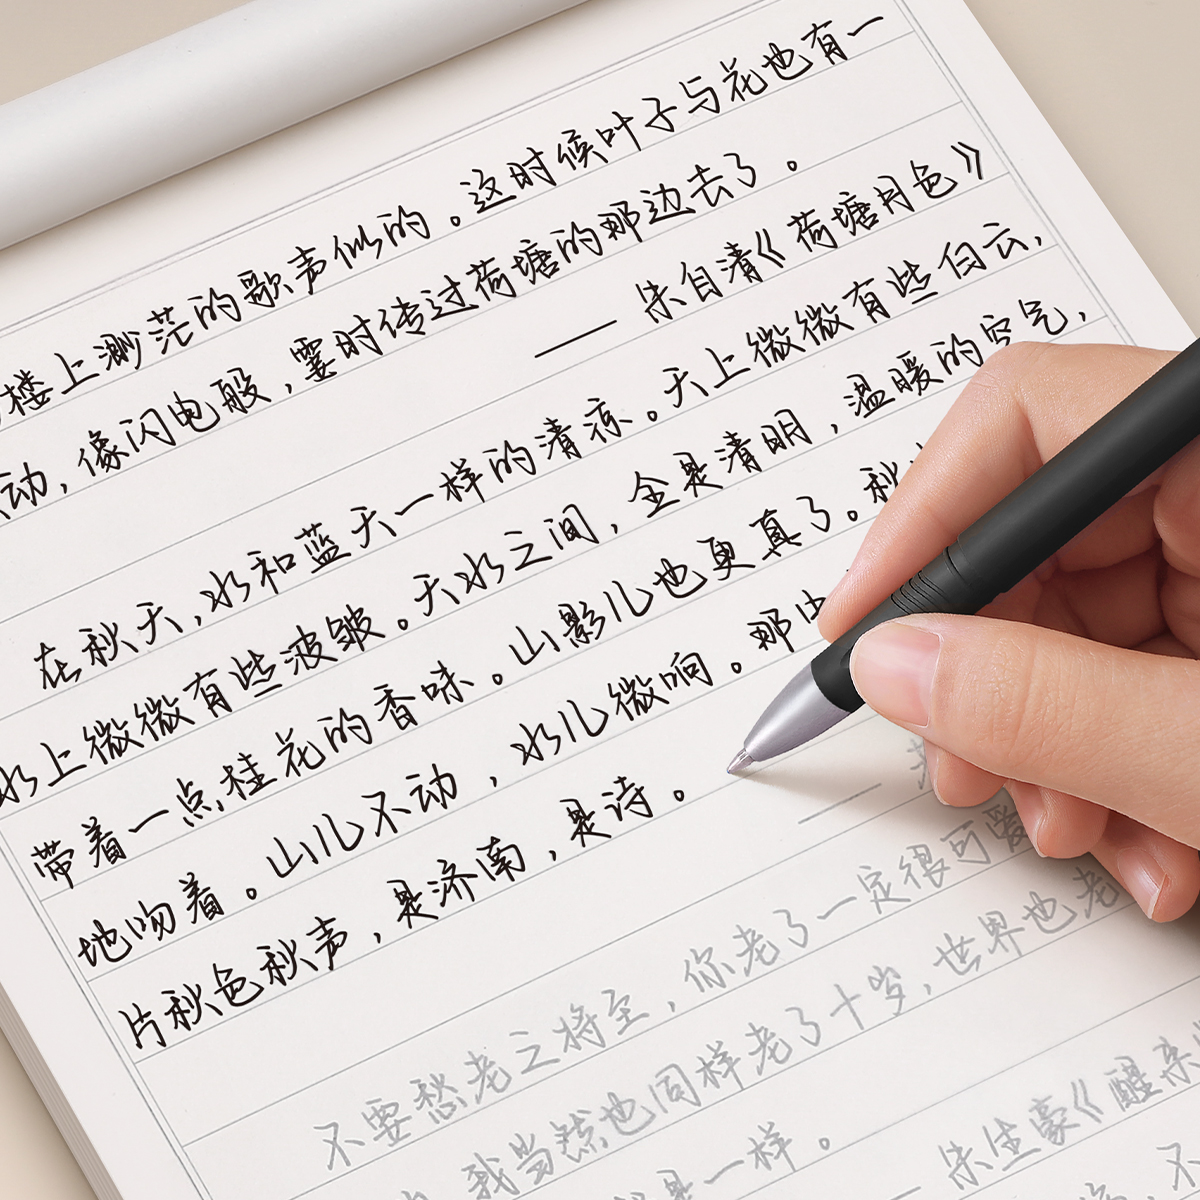 楼上渺茫的歌声似的。这时候叶子与花也有一
动，像闪电般，霎时传过荷塘的那边去了。
—— 朱自清《荷塘月色》
在秋天，水和蓝天一样的清凉。天上微微有些白云，
水上微微有些波皱。天水之间，全是清明，温暖的空气，
带着一点桂花的香味。山影儿也更真了。秋
地吻着。山儿不动，水儿微响。那
片秋色秋声，是济南，是诗。
——
不要愁老之将至，你老了一定很可爱
我当然也同样老了十岁，世界也老
是一样。
朱生豪《醒来
不